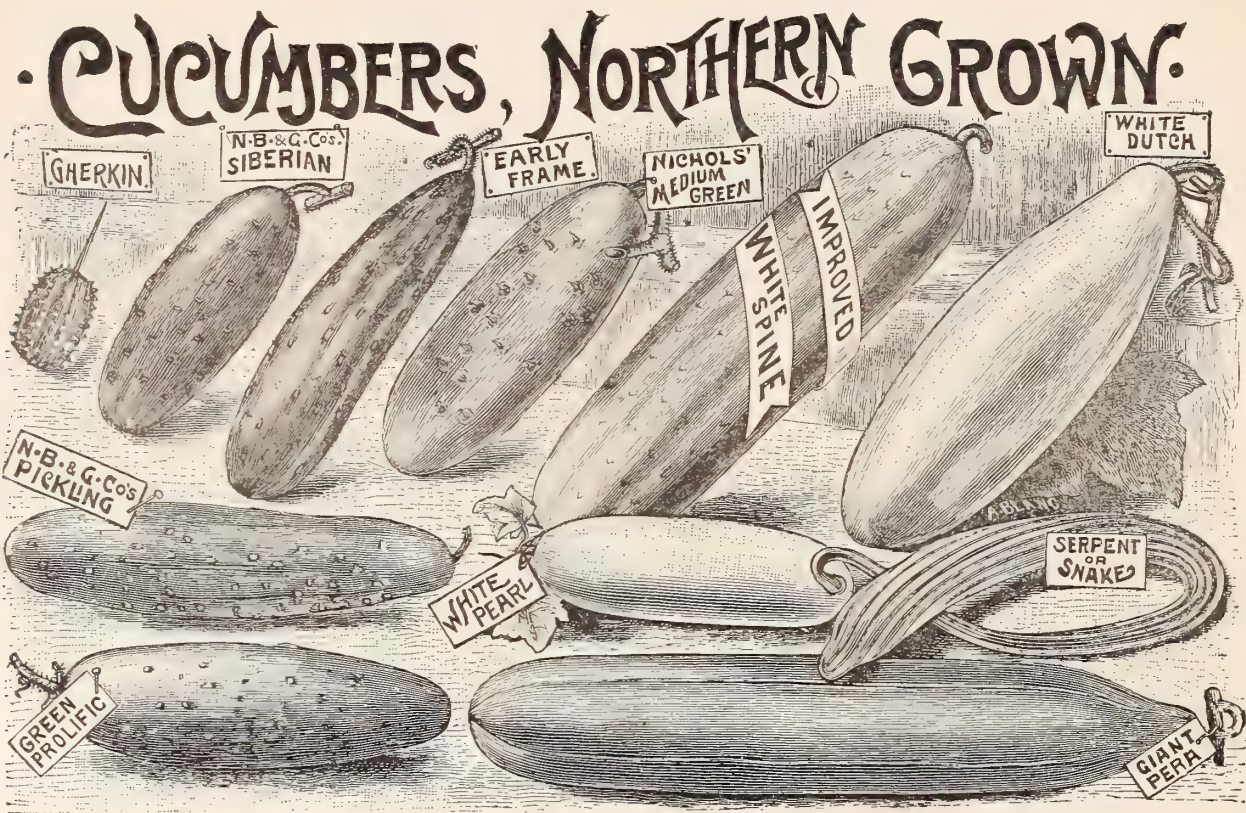 CUCUMBERS, NORTHERN GROWN.
GHERKIN.
N.B.&G.Co's.
SIBERIAN
EARLY
FRAME.
NICHOLS'
MEDIUM
GREEN
IMPROVED
WHITE SPINE
WHITE
DUTCH
N.B.&G.Co's
PICKLING
WHITE
PEARL
A. BLANC
SERPENT
OR
SNAKE
GREEN
PROLIFIC
GIANT
PERA.